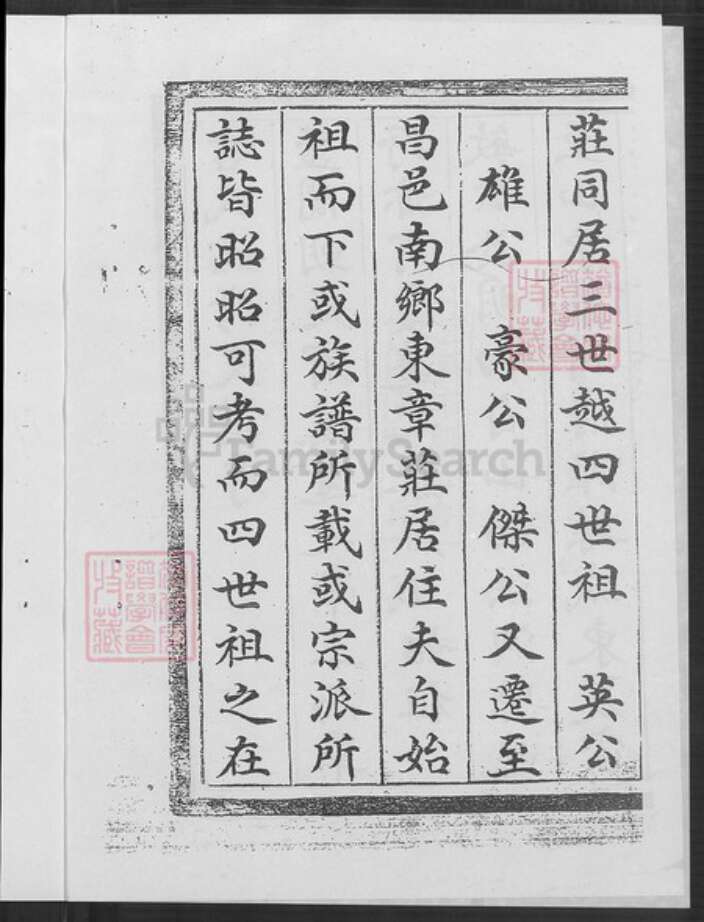 莊同居三世越四世祖　英公
雄公　豪公　傑公又遷至
昌邑南鄉東章莊居住夫自始
祖而下或族譜所載或宗派所
誌皆昭昭可考而四世祖之在
FamilySearch
譜學會
收藏
譜學會
收藏